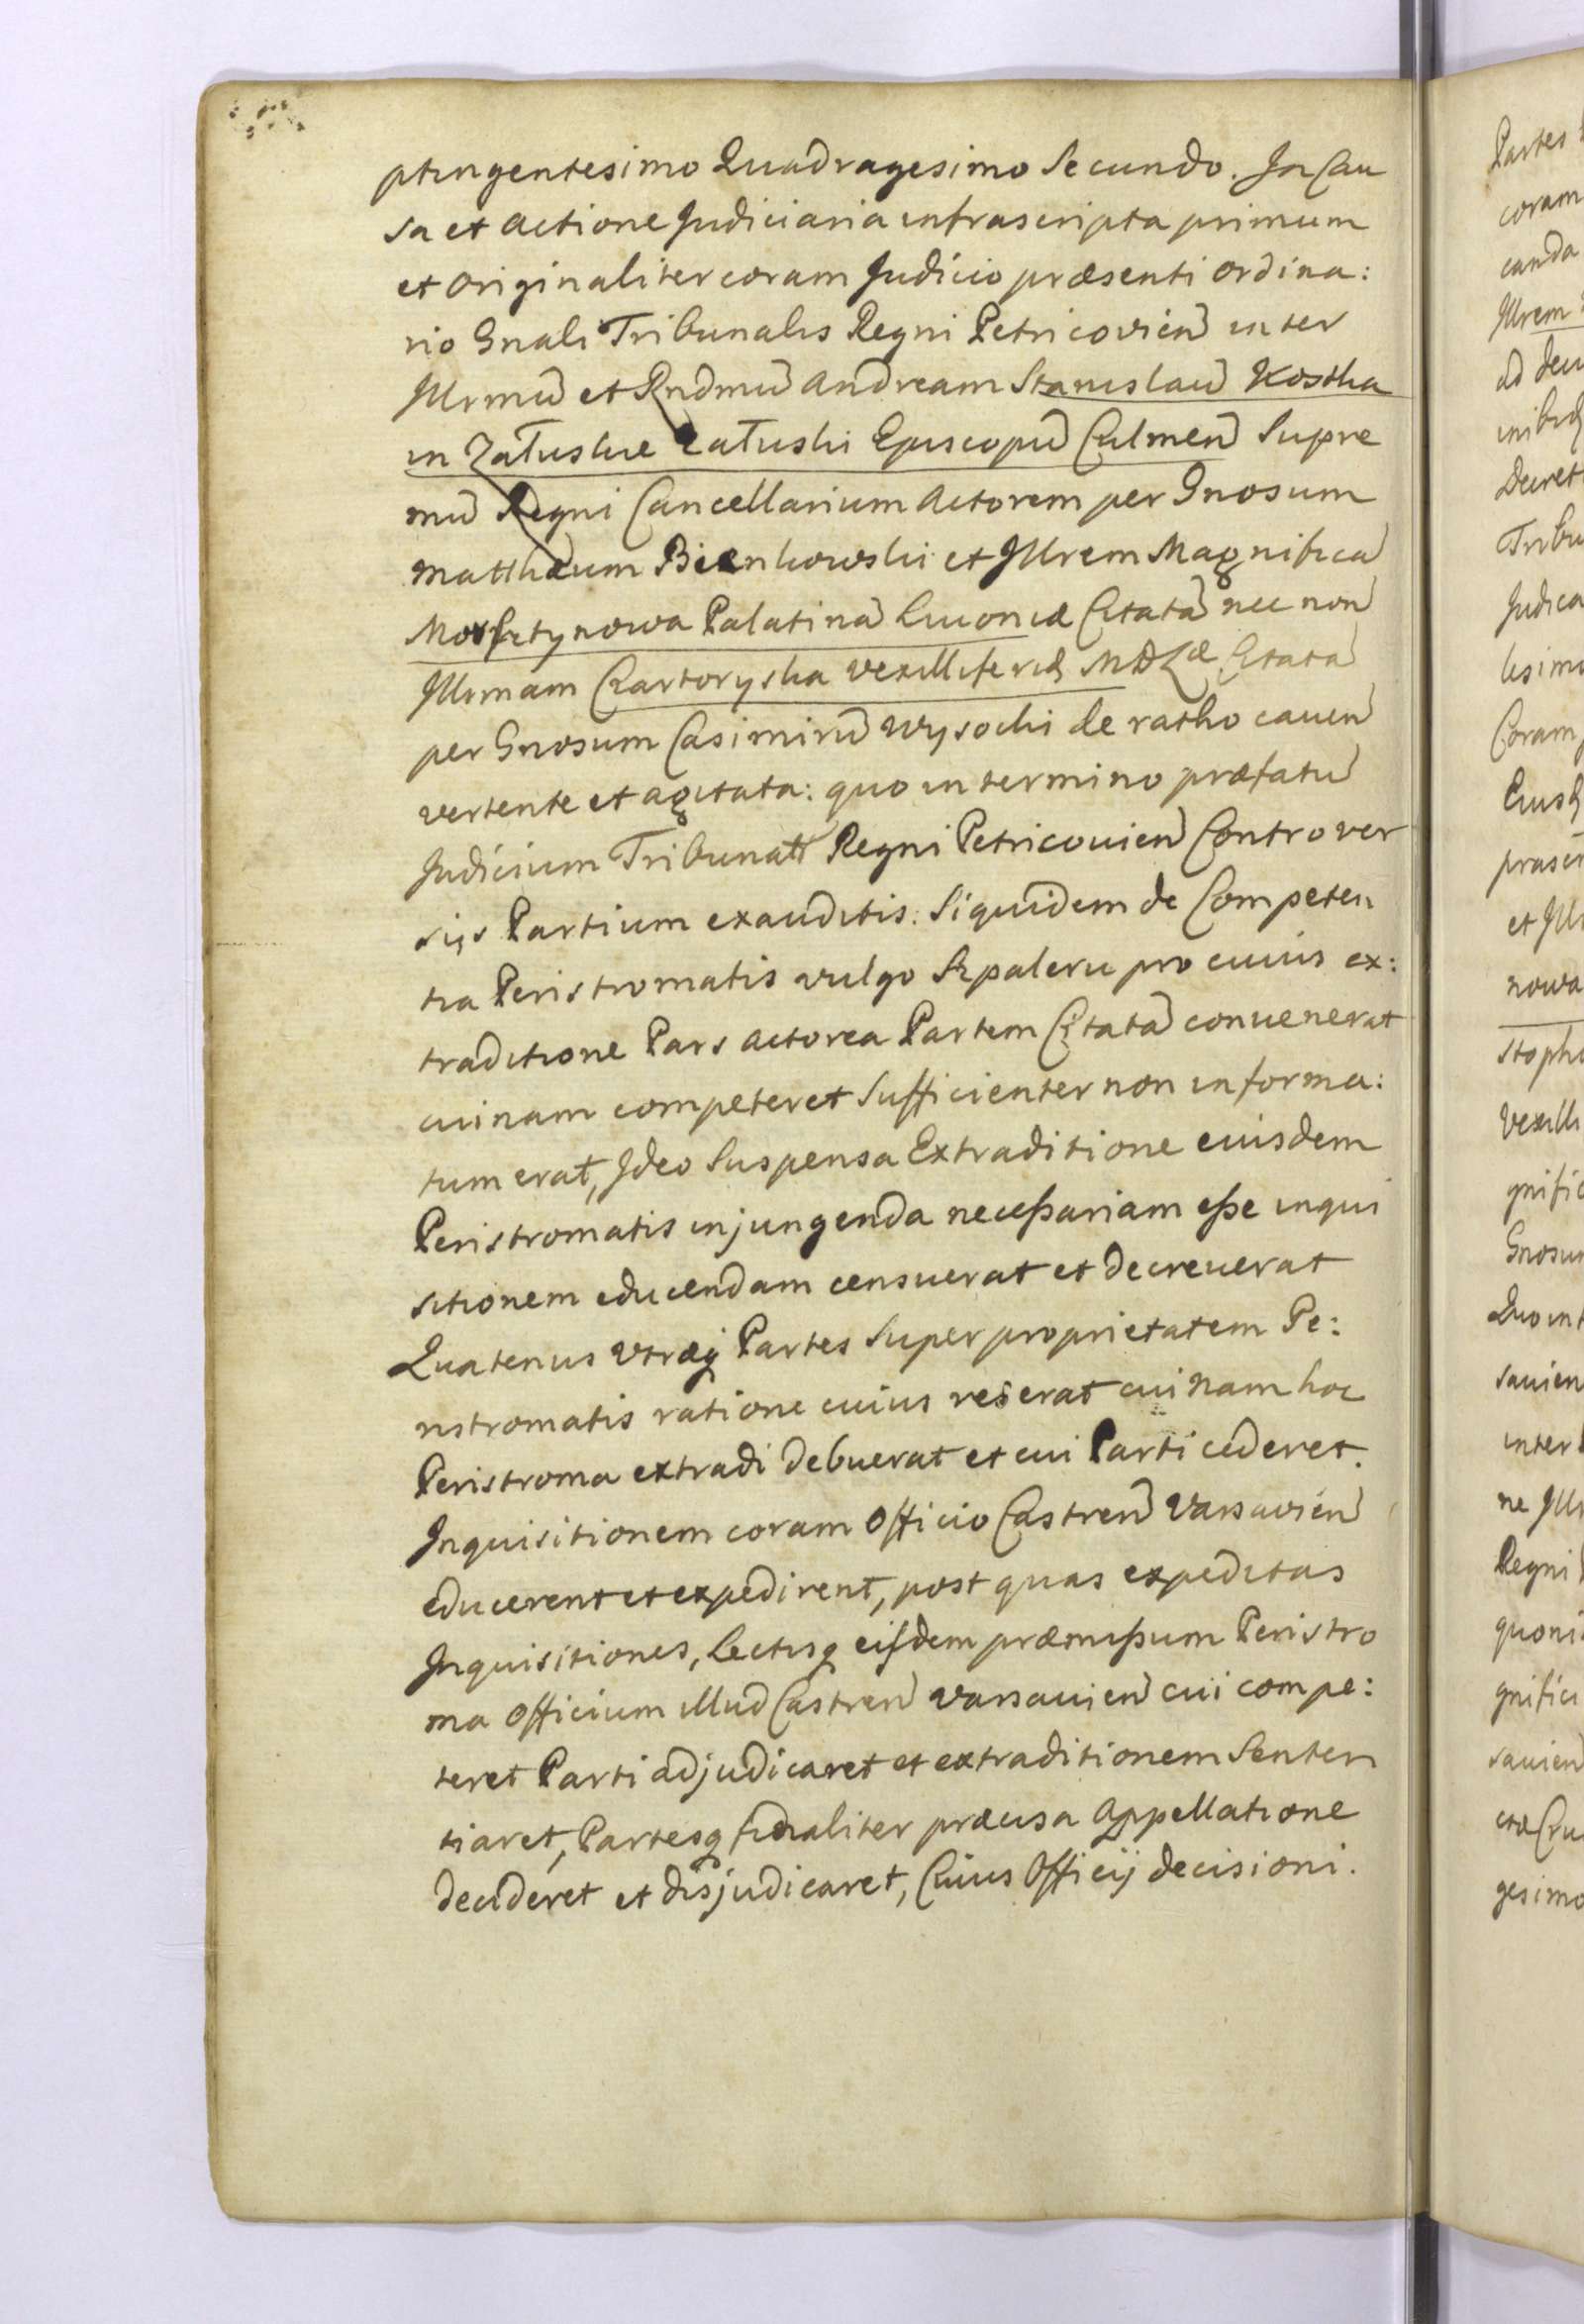 ptingentesimo Quadragesimo Secundo. In Cau
sa et Actione Judiciaria infrascripta primum
et Originaliter coram Judicio præsenti Ordina:
rio Gnali Tribunalis Regni Petricovien inter
Illrmu et Rndmu Andream Stanislau Kostka
in Załuskie Załuski Episcopu Culmen Supre
mu Regni Cancellarium Actorem per Gnosum
Matthæum Bienkowski et Illrem Magnifica
Morsztynowa Palatina Livoniæ Citata nec non
Illrmam Czartoryska Vexilliferid MDLæ Citata
per Gnosum Casimiru Wysocki de ratho cauen
vertente et agitata: quo in termino præfatu
Judicium Tribunatt Regni Petricouien Controver
sijs Partium exauditis. Siquidem de Competen
tia Peristromatis vulgo Szpaleru pro cuius ex:
traditione Pars Actorea Partem Citata convenerat
cuinam competeret Sufficienter non informa:
tum erat, Ideo Suspensa Extraditione eiusdem
Peristromatis injungenda neceßariam eße inqui
sitionem educendam censuerat et decreverat
Quatenus Vtræq Partes Super proprietatem Pe:
ristromatis ratione cuius res erat cuinam hoc
Peristroma extradi debuerat et cui Parti cederet.
Inquisitionem coram Officio Castren Varsavien
educerent et expedirent, post quas expeditas
Inquisitiones, Lectisq eisdem præmißum Peristro
ma Officium illud Castren Varsauien cui compe:
teret Parti adjudicaret et extraditionem Senten
tiaret, Partesq finaliter præcisa Appellatione
decideret et disjudicaret, Cuius Officij decisioni.
Partes
coram
canda
Illrem
ad deci
Decret
Tribu
Judica
lesimo
Coram
et Ill
nowa
stoph
Vexilli
gnific
Gnosum
Quo in t
sauien
inter
ne Ill
Regni
quoni
gnifici
sauien
gesimo